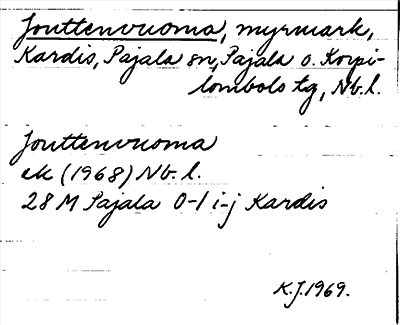 Jouttenvuoma, myrmark,
Kardis, Pajala sn, Pajala o. Korpi-
lombolo tg, Nb. l.
Jouttenvuoma
ek (1968) Nb. l.
28 M Pajala 0-1 i-j Kardis
K.J. 1969.